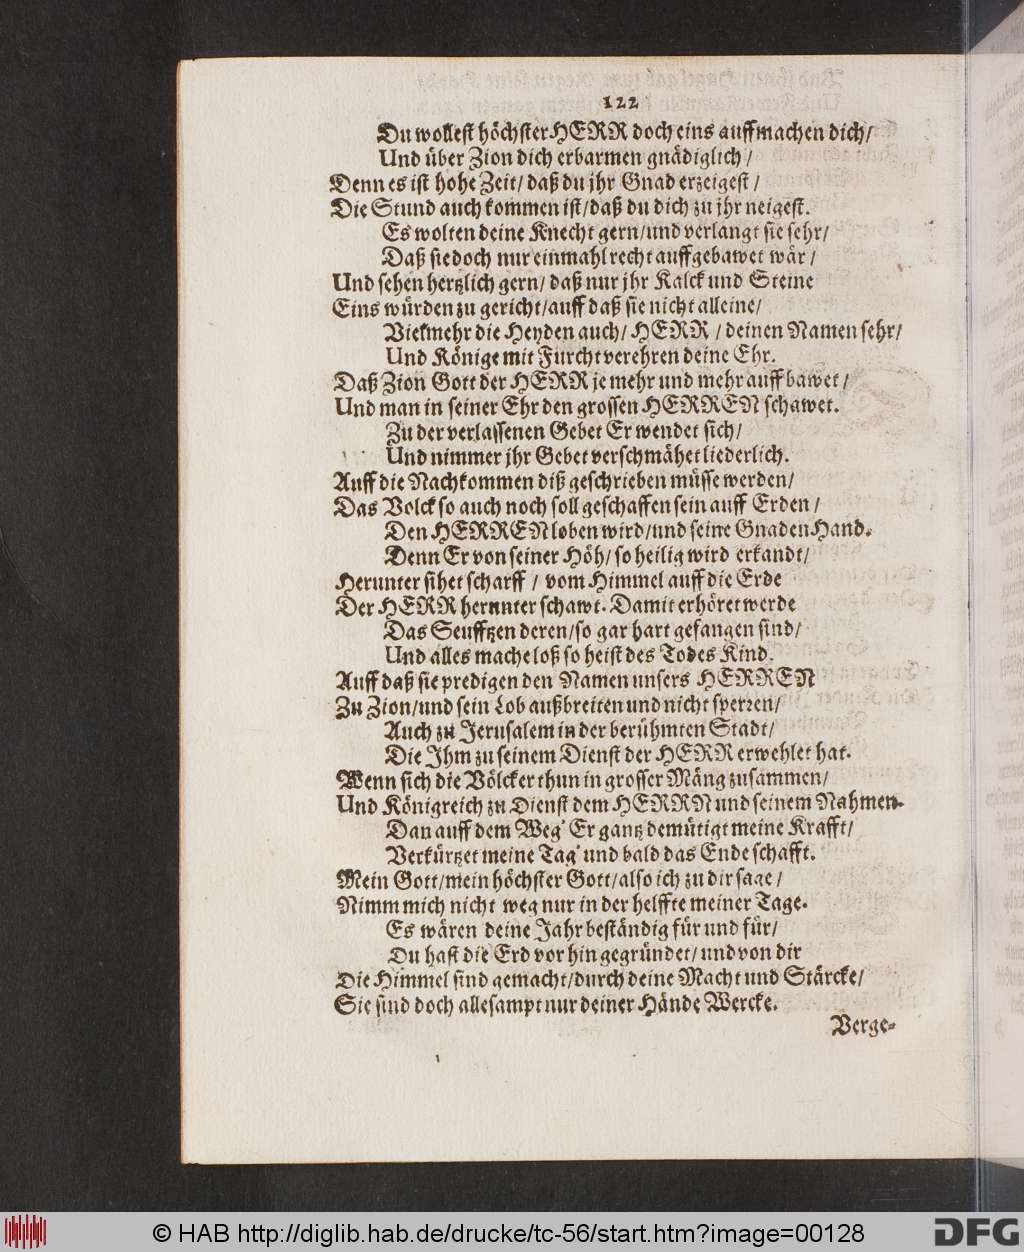 122
Du wollest höchster HERR doch eins auffmachen dich/
Und über Zion dich erbarmen gnädiglich/
Denn es ist hohe Zeit/ daß du jhr Gnad erzeigest/
Die Stund auch kommen ist/ daß du dich zu jhr neigest.
Es wolten deine Knecht gern/ und verlangt sie sehr/
Daß sie doch nur einmahl recht auffgebawet wär/
Und sehen hertzlich gern/ daß nur jhr Kalck und Steine
Eins würden zu gericht/ auff daß sie nicht alleine/
Vielmehr die Heyden auch/ HERR/ deinen Namen sehr/
Und Könige mit Furcht verehren deine Ehr.
Daß Zion Gott der HERR je mehr und mehr auffbawet/
Und man in seiner Ehr den grossen HERREN schawet.
Zu der verlassenen Gebet Er wendet sich/
Und nimmer jhr Gebet verschmähet liederlich.
Auff die Nachkommen diß geschrieben müsse werden/
Das Volck so auch noch soll geschaffen sein auff Erden/
Den HERREN loben wird/ und seine Gnaden Hand.
Denn Er von seiner Höh/ so heilig wird erkandt/
Herunter sihet scharff/ vom Himmel auff die Erde
Der HERR herunter schawt. Damit erhöret werde
Das Seufftzen deren/ so gar hart gefangen sind/
Und alles mache loß so heist des Todes Kind.
Auff daß sie predigen den Namen unsers HERREN
Zu Zion/ und sein Lob außbreiten und nicht sperren/
Auch zu Jerusalem in der berühmten Stadt/
Die Jhm zu seinem Dienst der HERR erwehlet hat.
Wenn sich die Völcker thun in grosser Mäng zusammen/
Und Königreich zu Dienst dem HERRN und seinem Nahmen.
Dan auff dem Weg' Er gantz demütigt meine Krafft/
Verkürtzet meine Tag' und bald das Ende schafft.
Mein Gott/ mein höchster Gott/ also ich zu dir sage/
Nimm mich nicht weg nur in der helffte meiner Tage.
Es wären deine Jahr beständig für und für/
Du hast die Erd vorhin gegründet/ und von dir
Die Himmel sind gemacht/ durch deine Macht und Stärcke/
Sie sind doch allesampt nur deiner Hände Wercke.
Verge-
© HAB http://diglib.hab.de/drucke/tc-56/start.htm?image=00128
DFG